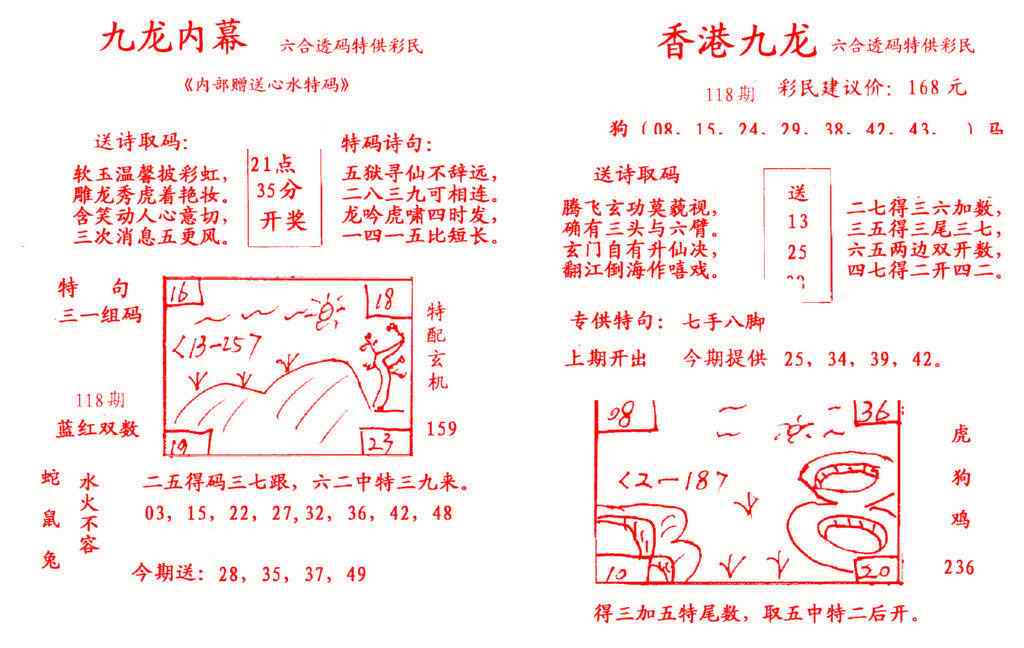 九龙内幕 六合透码特供彩民
《内部赠送心水特码》
送诗取码:
软玉温馨披彩虹,
雕龙秀虎着艳妆。
含笑动人心意切,
三次消息五更风。
21点
35分
开奖
特码诗句:
五狱寻仙不辞远,
二八三九可相连。
龙吟虎啸四时发,
一四一五比短长。
特 句
三一组码
118期
蓝红双数
16
18
<13-257
19
23
特配玄机
159
蛇
鼠
兔
水火不容
二五得码三七跟,六二中特三九来。
03, 15, 22, 27,32, 36, 42, 48
今期送: 28, 35, 37, 49
香港九龙 六合透码特供彩民
118期 彩民建议价: 168 元
狗(08. 15. 24. 29. 38. 42. 43. )马
送诗取码
腾飞玄功莫藐视,
确有三头与六臂。
玄门自有升仙决,
翻江倒海作嘻戏。
送
13
25
二七得三六加数,
三五得三尾三七,
六五两边双开数,
四七得二开四二。
专供特句: 七手八脚
上期开出 今期提供 25, 34, 39, 42。
08
36
<2-187
10
20
虎
狗
鸡
236
得三加五特尾数,取五中特二后开。